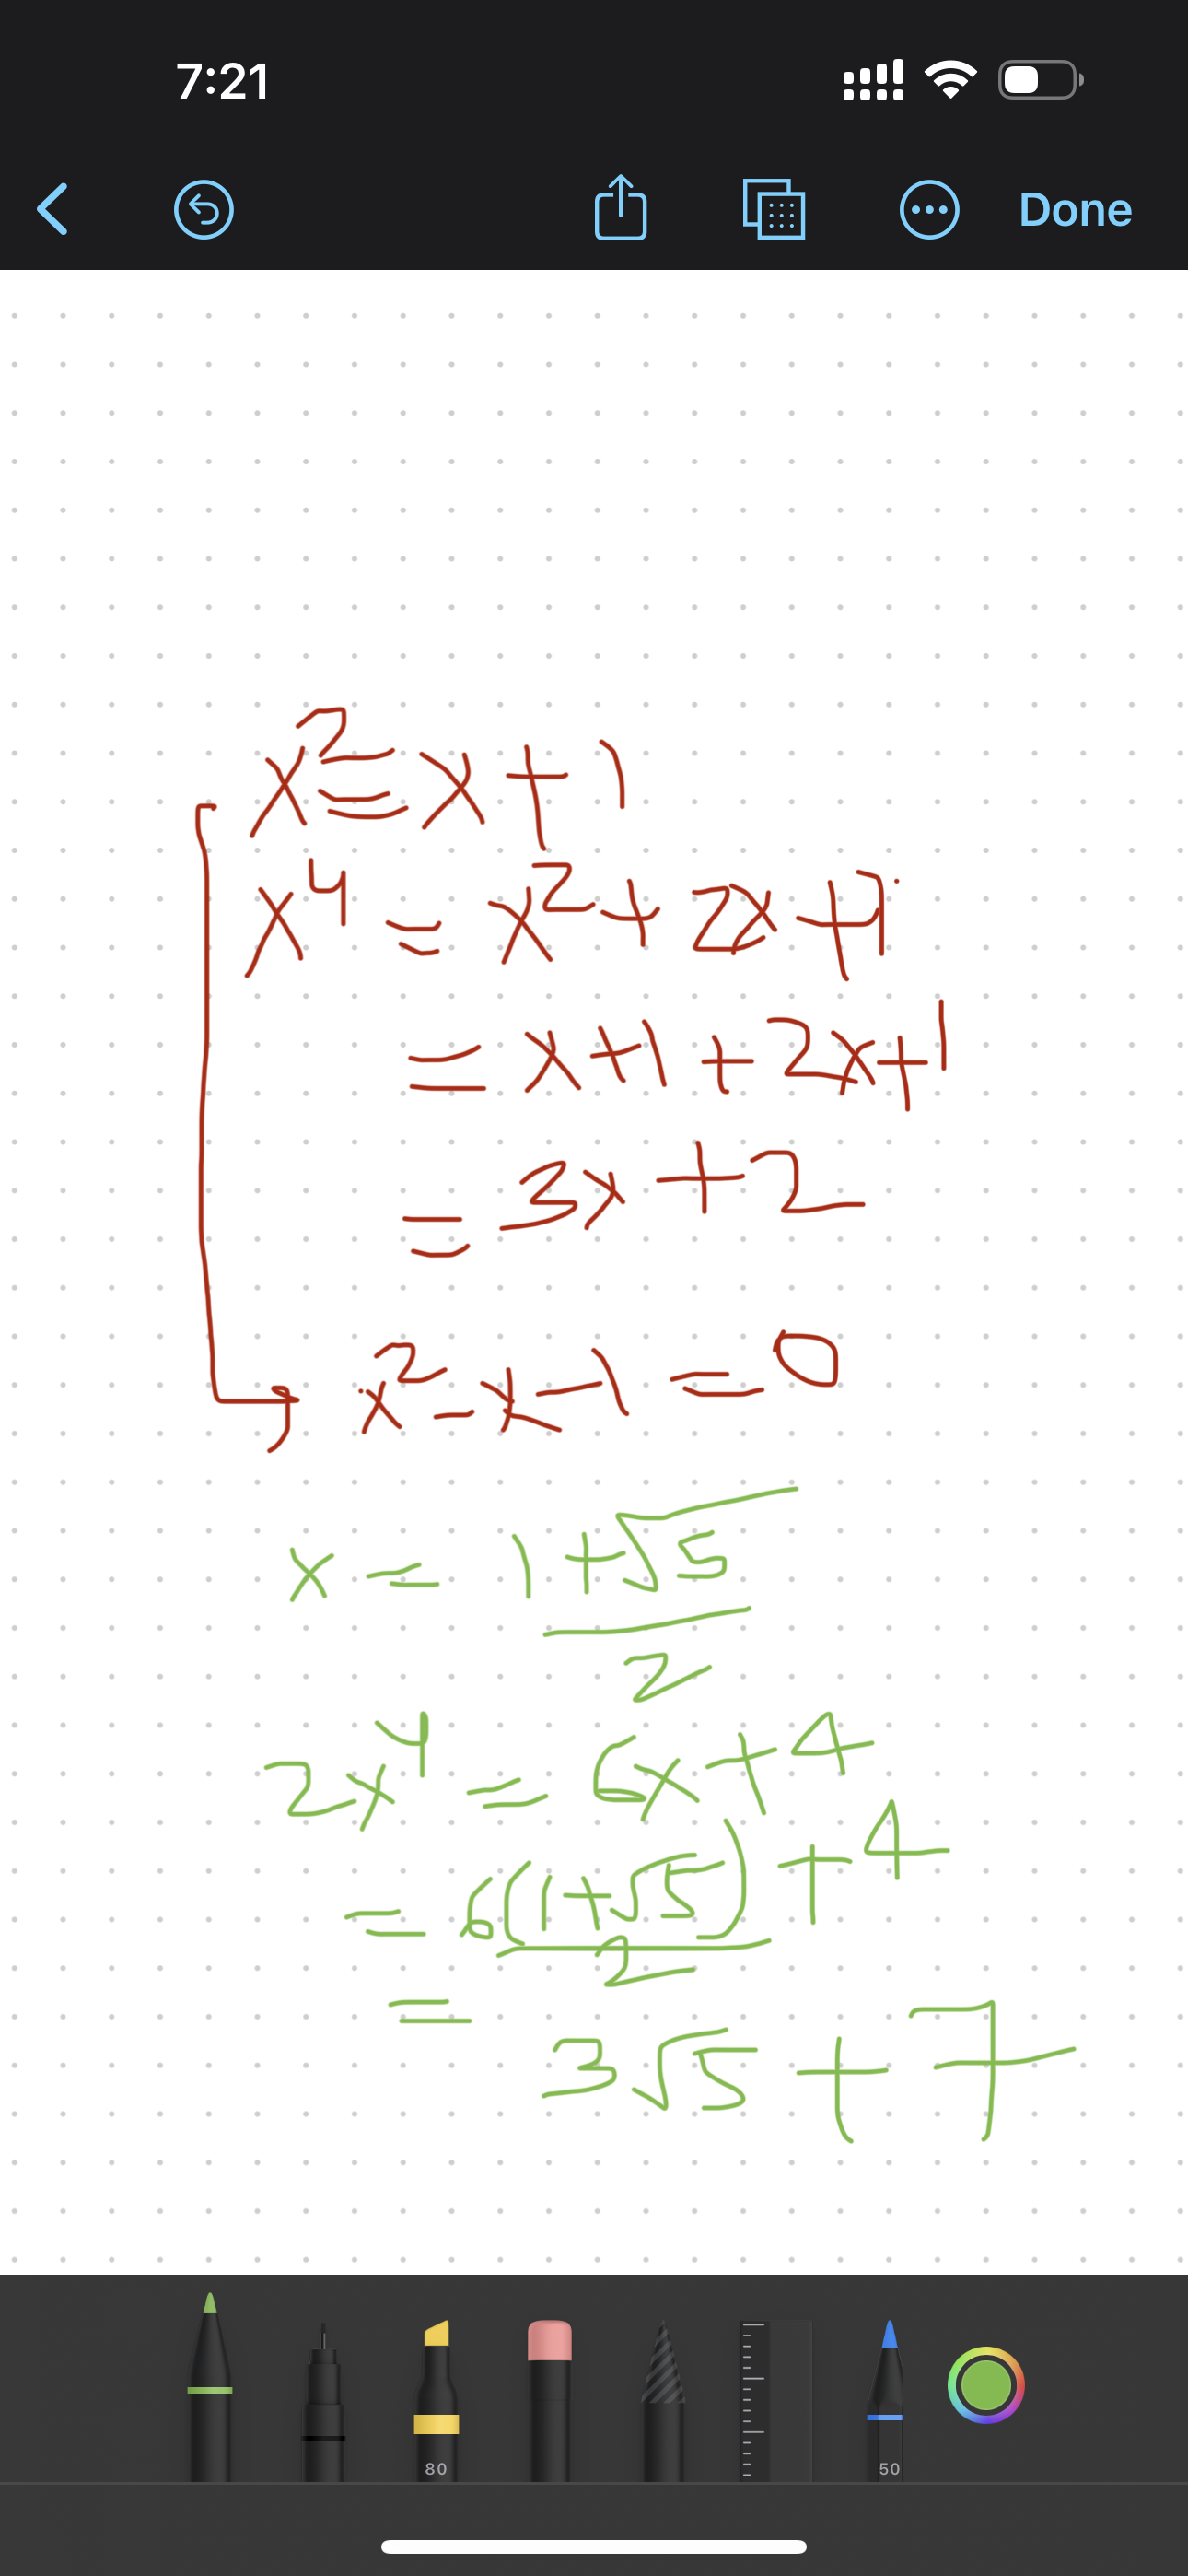 7:21
Done
x² = x + 1
x⁴ = x² + 2x + 1
= x + 1 + 2x + 1
= 3x + 2
x² - x - 1 = 0
x = 1 + √5
2
2x⁴ = 6x + 4
= 6(1 + √5) + 4
2
= 3√5 + 7
80
50